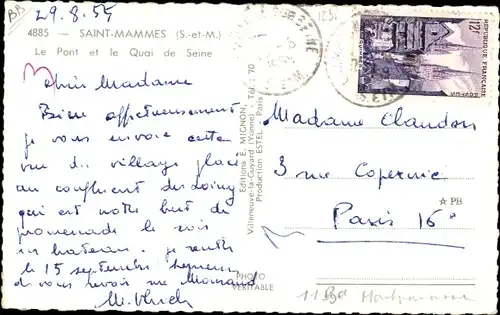 BB
29.8.55
4885 — SAINT-MAMMES (S.-et-M.)
Le Pont et le Quai de Seine
Chère Madame
Bien affectueusement
je vous envoie cette
vue du village placé
au confluent du Loing
qui est notre but de
promenade le soir
en bateau. je rentre
le 15 septembre heureuse
de vous revoir
M. Ulrich
Editions E. MIGNON,
Villeneuve-la-Guyard (Yonne) - Tél. : 70
Production ESTEL - Paris
PHOTO
VÉRITABLE
12F
REPUBLIQUE FRANÇAISE
Madame Claudon
3 rue Copernic
☆ PB
Paris 16e
11 Bd